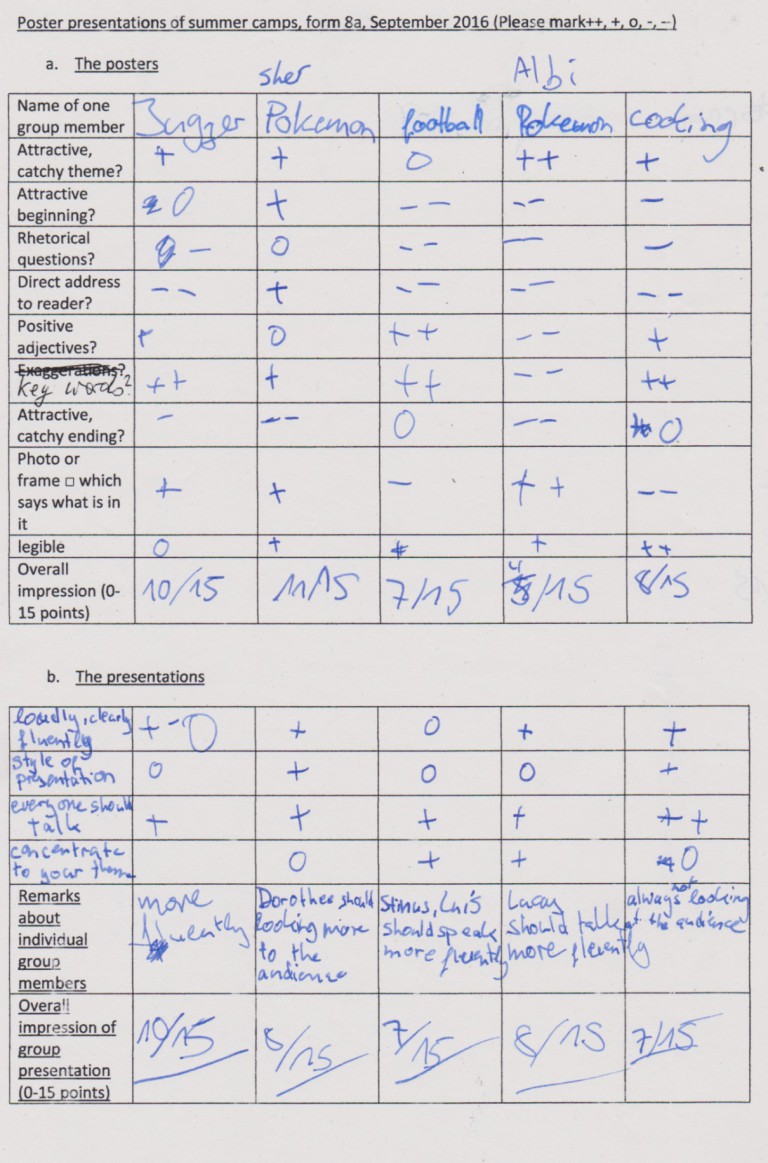 Poster presentations of summer camps, form 8a, September 2016 (Please mark++, +, o, -, --)
a. The posters
sher Albi
Name of one
group member Jugger Pokemon football Pokemon cooking
Attractive,
catchy theme? + + O ++ +
Attractive
beginning? O + -- -- -
Rhetorical
questions? - O -- -- -
Direct address
to reader? -- + -- -- --
Positive
adjectives? + O ++ -- +
Exaggerations?
Key words? ++ + ++ -- ++
Attractive,
catchy ending? - -- O -- O
Photo or
frame □ which
says what is in
it + + - ++ --
legible O + + + ++
Overall
impression (0-
15 points) 10/15 11/15 7/15 4/15 8/15
b. The presentations
loudly, clearly
fluently + - O + O + +
style of
presentation O + O O +
everyone should
talk + + + + ++
concentrate
to your theme O + + O
Remarks
about
individual
group
members
more
fluently
Dorothea should
looking more
to the
audience
Luis
should speak
more fluently
Lucas
should talk
more fluently
always not looking
at the audience
Overall
impression of
group
presentation
(0-15 points) 10/15 8/15 7/15 8/15 7/15